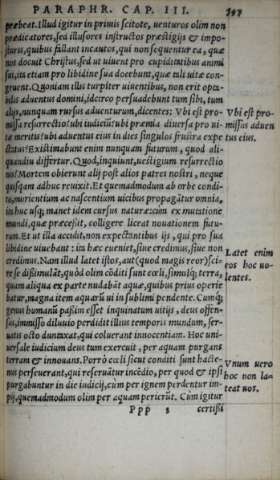 PARAPHR. CAP. III. 347
præbeat. Illud igitur in primis scitote, uenturos olim non
prædicatores, sed illusores instructos præstigijs & impo-
sturis, quibus fallant incautos, qui non sequentur ea, quæ
nos docuit Christus, sed ut uiuent pro cupiditatibus animi
sui, ita etiam pro libidine sua docebunt, quæ tali uitæ con-
gruent. Quoniam illis turpiter uiuentibus, non erit ope-
dis aduentus domini, idcirco persuadebunt tum sibi, tum
alijs, nunquam rursus aduenturum, dicentes: Vbi est pro-
missa resurrectio? ubi iudicium? ubi præmia diuersa pro ui-
tæ meritis? ubi aduentus eius in dies singulos frustra expe
ctatus? Existimabunt enim nunquam futurum, quod ali-
quandiu differtur. Quod, inquiunt, uestigium resurrectio
nis? Mortem obierunt alij post alios patres nostri, neque
quisquam adhuc reuixit. Et quemadmodum ab orbe condi-
to, morientium ac nascentium uicibus propagatur omnia,
in huc usq; manet idem cursus naturæ: cum ex mutatione
mundi, quæ præcessit, colligere liceat nouationem futu-
ram. Et ut illa accidit, non expectantibus ijs, qui pro sua
libidine uiuebant: ita hæc eueniet, siue credimus, siue non
credimus. Nam illud latet istos, aut (quod magis reor) sci-
re se dissimulāt, quòd olim cōditi sunt cœli, simulq; terra,
quam aliqua ex parte nudabāt aquæ, quibus prius operie
batur, magna item aquarū ui in sublimi pendente. Cumq;
genus humanū passim esset inquinatum uitijs, deus offen-
sus, immisso diluuio perdidit illius temporis mundum, ser-
uatis octo duntaxat, qui coluerant innocentiam. Hoc uni-
uersale iudicium deus tum exercuit, per aquam purgans
terram & innouans. Porrò cœli sicut conditi sunt hacte-
nus perseuerant, qui reseruātur incēdio, per quod & ipsi
purgabuntur in die iudicij, cùm per ignem perdentur im-
pij, quemadmodum olim per aquam perierūt. Cùm igitur
Ppp 3 certissi
Vbi est pro-
missus aduen
tus eius.
Latet enim
eos hoc uo-
lentes.
Vnum uero
hoc non la-
teat uos.